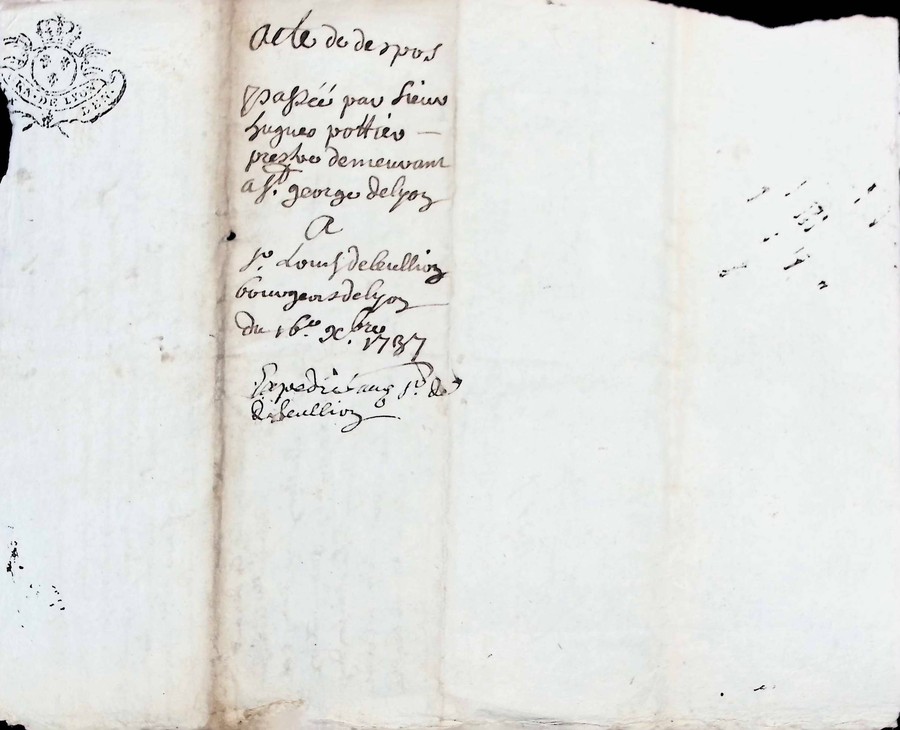 GEN. DE LYON
DEN.
Acte de depos
passéé par Sieur
hugues pottier —
prestre demeurant
a St. george delyon
A
Sr. Louis deleullion
bourgeois delyon
du 16e. Xbre 1737
Expedié aud Sr. de
deleullion